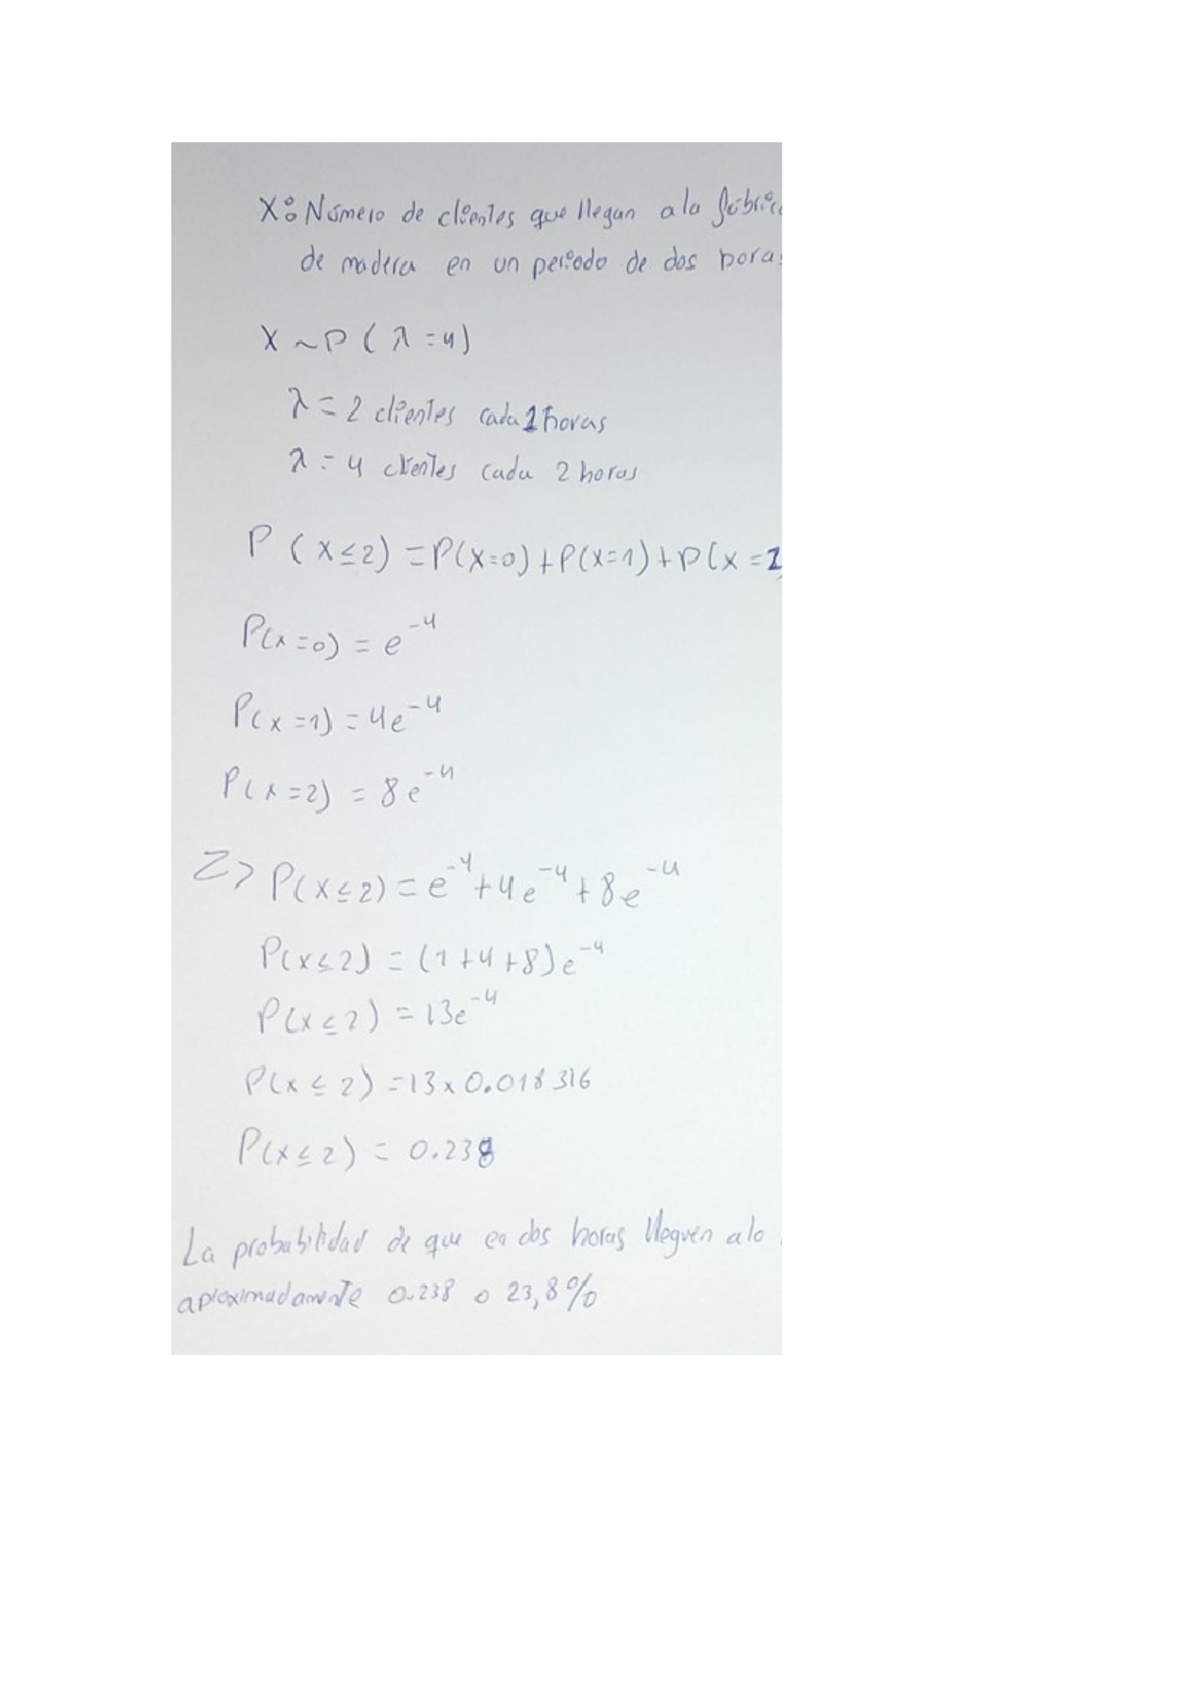 X: Número de clientes que llegan a la fábric
de madera en un periodo de dos hora
X ~ P ( λ = 4)
λ = 2 clientes cada 1 horas
λ = 4 clientes cada 2 horas
P ( X ≤ 2) = P(X=0) + P(X=1) + P(X = 2
P(X=0) = e^-4
P(X=1) = 4e^-4
P(X=2) = 8e^-4
P(X≤2) = e^-4 + 4e^-4 + 8e^-4
P(X≤2) = (1+4+8)e^-4
P(X≤2) = 13e^-4
P(X≤2) = 13 x 0.018316
P(X≤2) = 0.238
La probabilidad de que en dos horas lleguen a lo
aproximadamente 0.238 o 23,8%